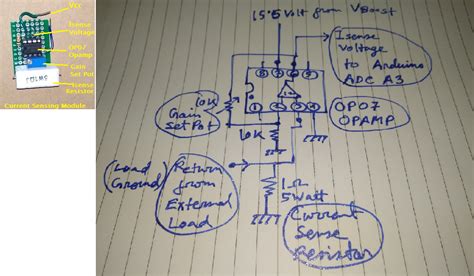 Vcc
Isense
Voltage
OP07
Opamp
Gain
Set Pot
Isense
Resistor
Current Sensing Module
15.5 Volt from VBoost
Isense
Voltage
to Arduino
ADC A3
8 7 6 5
1 2 3 4
OP07
OPAMP
10K
Gain
Set Pot
10K
(Load
Ground)
Return
from
External
Load
1Ω
5Watt
Current
Sense
Resistor